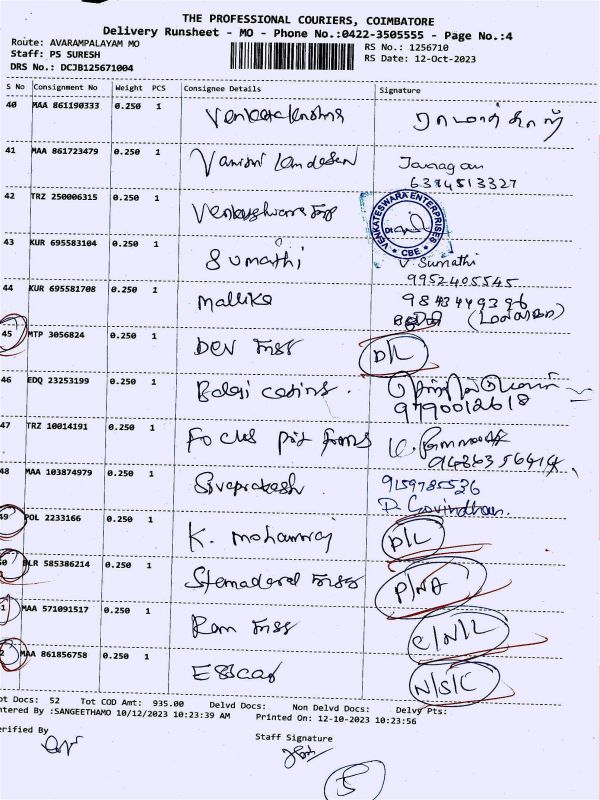 THE PROFESSIONAL COURIERS, COIMBATORE
Delivery Runsheet - MO - Phone No.:0422-3505555 - Page No.:4
Route: AVARAMPALAYAM MO
Staff: PS SURESH
DRS No.: DCJB125671004
RS No.: 1256710
RS Date: 12-Oct-2023
S No Consignment No Weight PCS Consignee Details Signature
40 MAA 861190333 0.250 1
41 MAA 861723479 0.250 1
6374513327
42 TRZ 250006315 0.250 1
VENKATESWARA ENTERPRISES
CBE
43 KUR 695583104 0.250 1 Sumathi V. Sumathi
9952405545
44 KUR 695581708 0.250 1 Mallika
45 MTP 3056824 0.250 1 Dev D/L
46 EDQ 23253199 0.250 1
9790012618
47 TRZ 10014191 0.250 1 Focus
48 MAA 103874979 0.250 1 Sivaprakash 9159785536
D. Govindhan.
49 POL 2233166 0.250 1 K. Mohanraj D/L
50 BLR 585386214 0.250 1 P/NA
51 MAA 571091517 0.250 1 Ram C/N/L
52 MAA 861856758 0.250 1 N/S/C
ot Docs: 52 Tot COD Amt: 935.00 Delvd Docs: Non Delvd Docs: Delvy Pts:
ntered By :SANGEETHAMO 10/12/2023 10:23:39 AM Printed On: 12-10-2023 10:23:56
erified By
Staff Signature
5